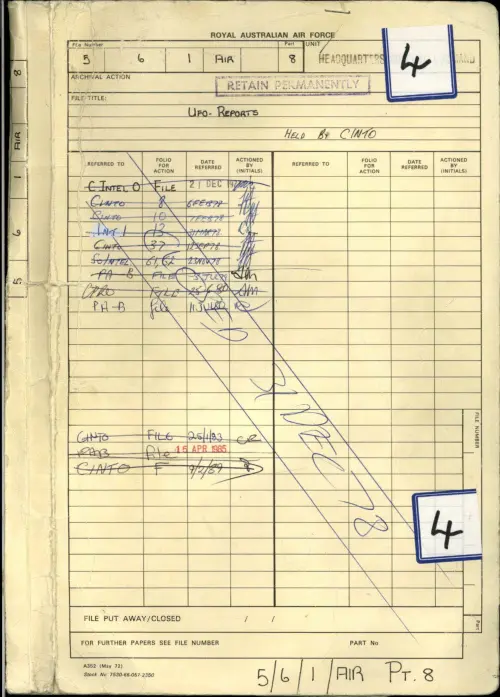 ROYAL AUSTRALIAN AIR FORCE
File Number Part UNIT
5 6 1 AIR 8 HEADQUARTERS
4
ARCHIVAL ACTION
RETAIN PERMANENTLY
FILE TITLE:
UFO-REPORTS
HELD BY CINTO
REFERRED TO FOLIO FOR ACTION DATE REFERRED ACTIONED BY (INITIALS) REFERRED TO FOLIO FOR ACTION DATE REFERRED ACTIONED BY (INITIALS)
C INTEL O FILE 21 DEC
CINTO 8
CINTO 10
INT 1 13
CINTO 37
SO INTEL 61, 62
PA B FILE
CPRO FILE
PA-B file
CLOSED 31 DEC 78
CINTO FILE 25/1/83
PAB file 16 APR 1985
CINTO F 9/2/89
FILE NUMBER
4
Part
FILE PUT AWAY/CLOSED / /
FOR FURTHER PAPERS SEE FILE NUMBER PART No
A353 (May 73)
Stock No 7530-66-051-2350
5/6/1/AIR PT. 8
5 6 1 AIR 8